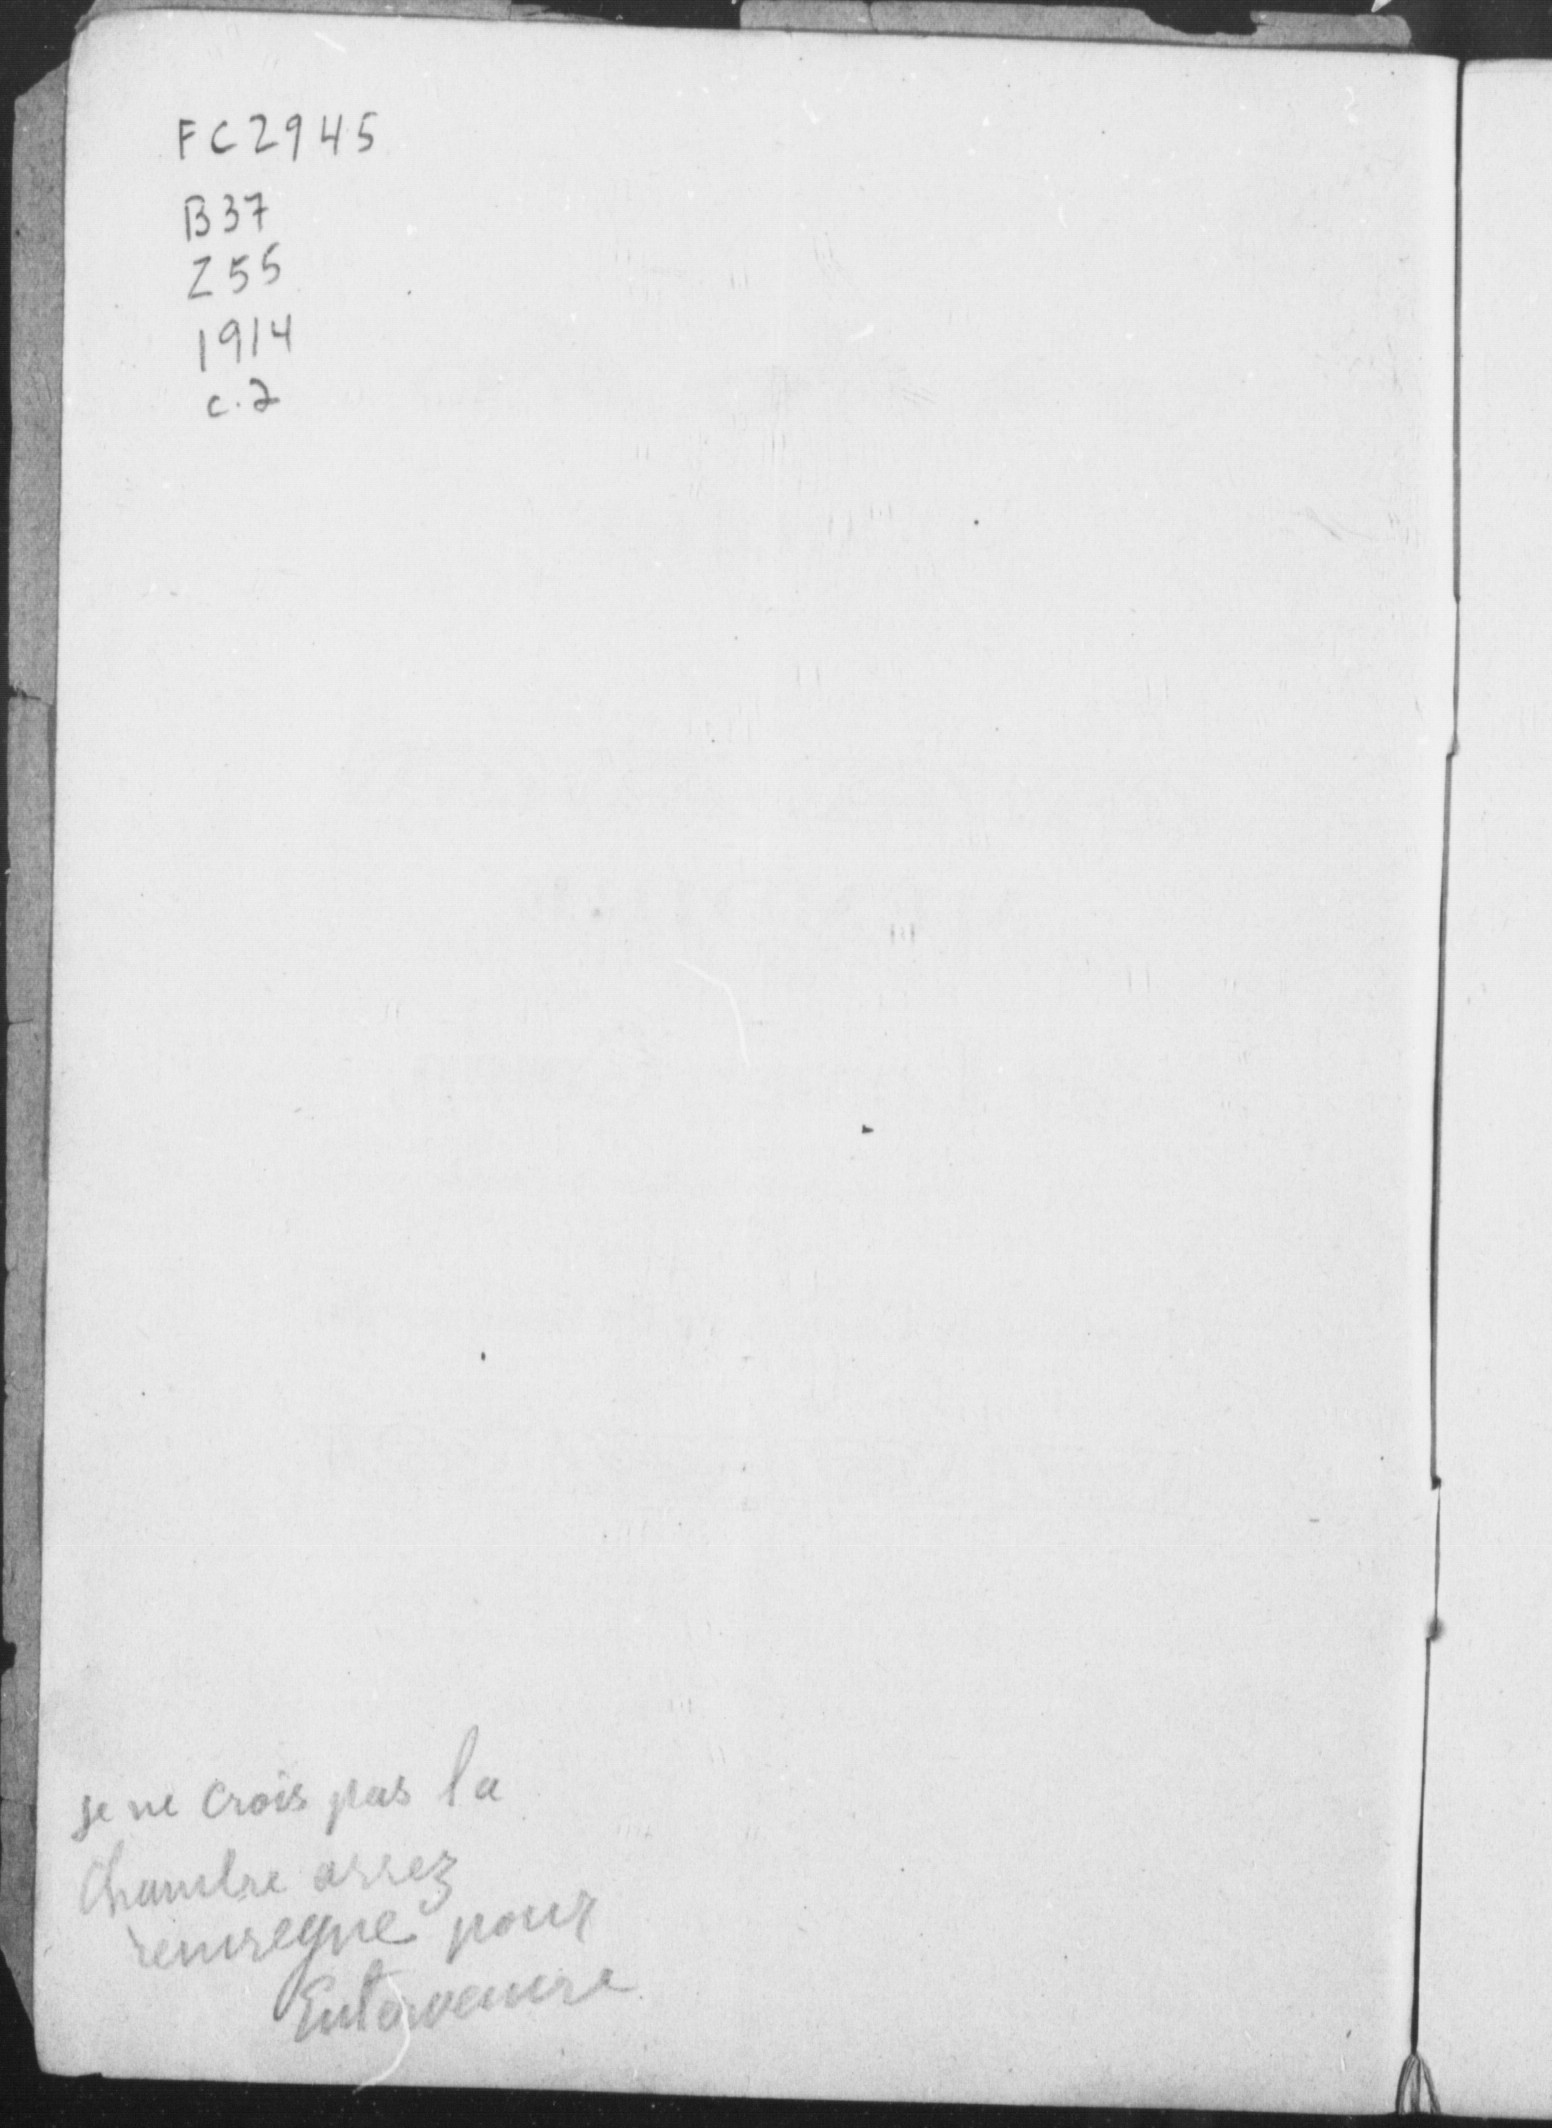 FC2945
B37
Z55
1914
c.2
je ne crois pas la
Chambre assez
renseigne pour
Entervenire